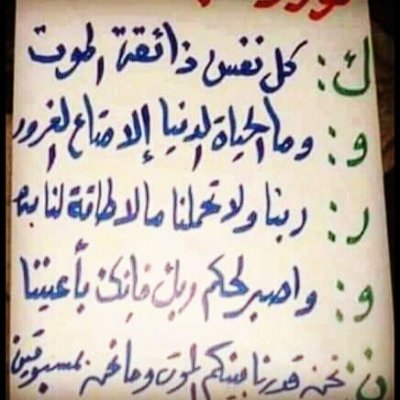 ك: كل نفس ذائقة الموت
و: وما الحياة الدنيا إلا متاع الغرور
ر: ربنا ولا تحملنا مالا طاقة لنا به
و: واصبر لحكم ربك فإنك بأعيننا
ن: نحن قدرنا بينكم الموت وما نحن بمسبوقين